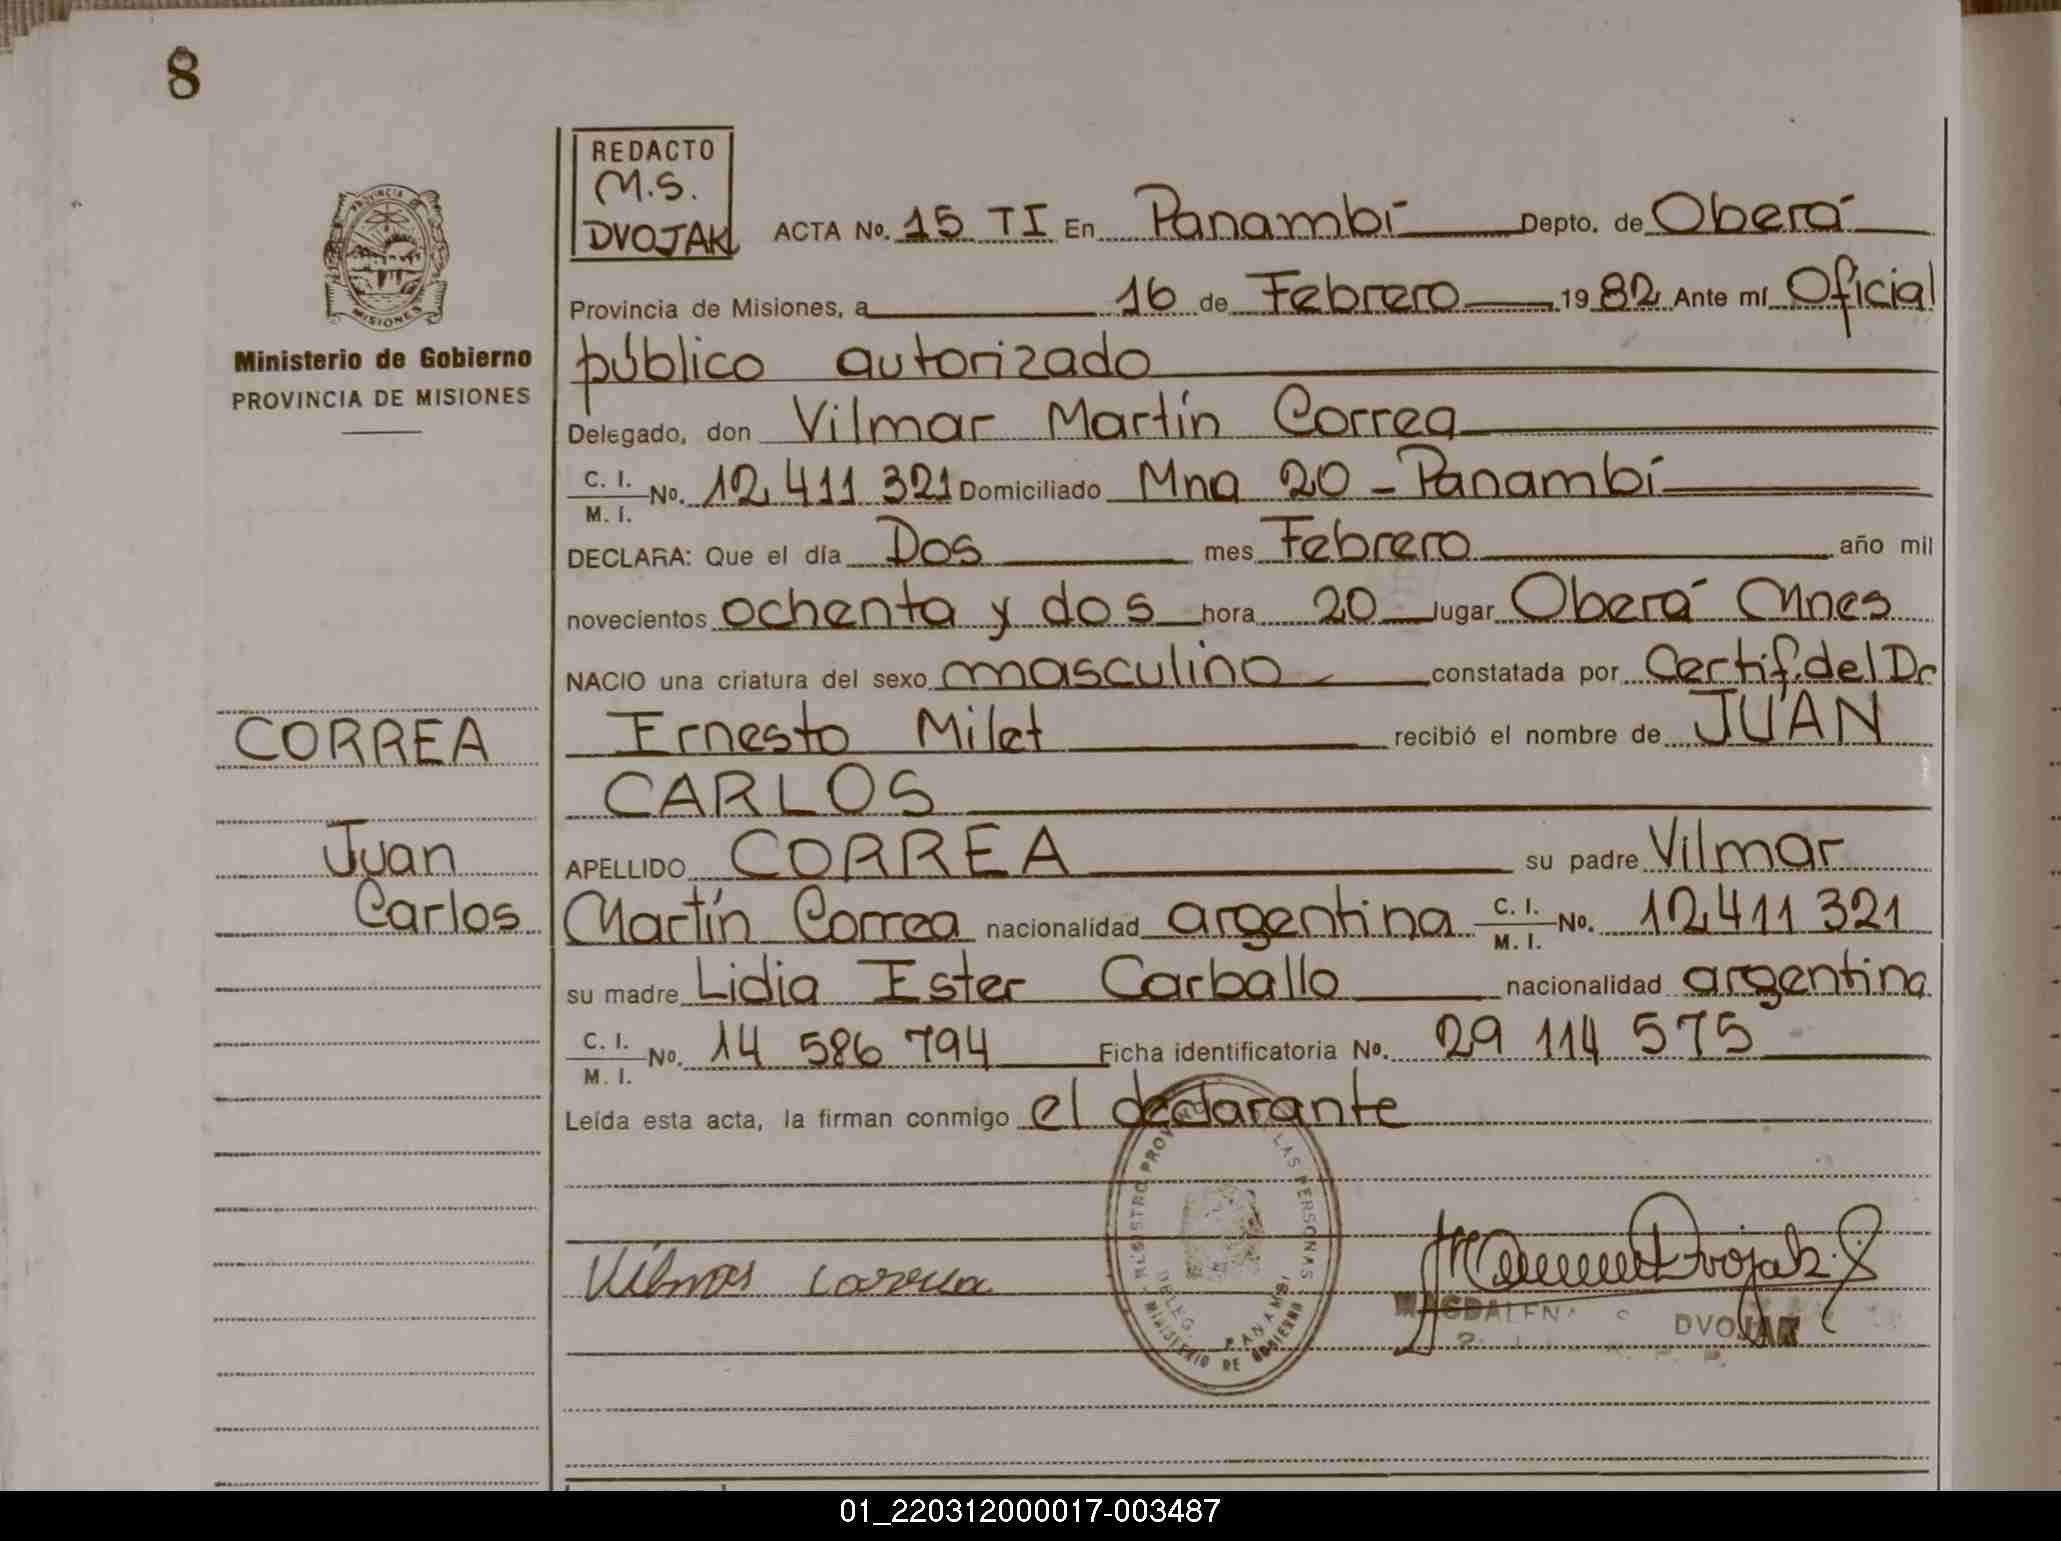 8
REDACTO
M.S.
DVOJAK
ACTA No. 15 TI En Panambí Depto. de Oberá
Provincia de Misiones, a 16 de Febrero 1982 Ante mí Oficial
público autorizado
Delegado, don Vilmar Martín Correa
C. I. M. I. No. 12.411 321 Domiciliado Mna 20 - Panambí
DECLARA: Que el día Dos mes Febrero año mil
novecientos ochenta y dos hora 20 lugar Oberá Mnes
NACIO una criatura del sexo masculino constatada por Certif. del Dr
Ernesto Milet recibió el nombre de JUAN
CARLOS
APELLIDO CORREA su padre Vilmar
Martín Correa nacionalidad argentina C. I. M. I. No. 12.411 321
su madre Lidia Ester Carballo nacionalidad argentina
C. I. M. I. No. 14 586 794 Ficha identificatoria No. 29 114 575
Leída esta acta, la firman conmigo el declarante
Ministerio de Gobierno
PROVINCIA DE MISIONES
MISIONES
CORREA
Juan
Carlos
REGISTRO PROV LAS PERSONAS
DELEG. PANAMBI
MINISTERIO DE GOBIERNO
Vilmar Correa
Dvojak
MAGDALENA S DVOJAK
01_220312000017-003487